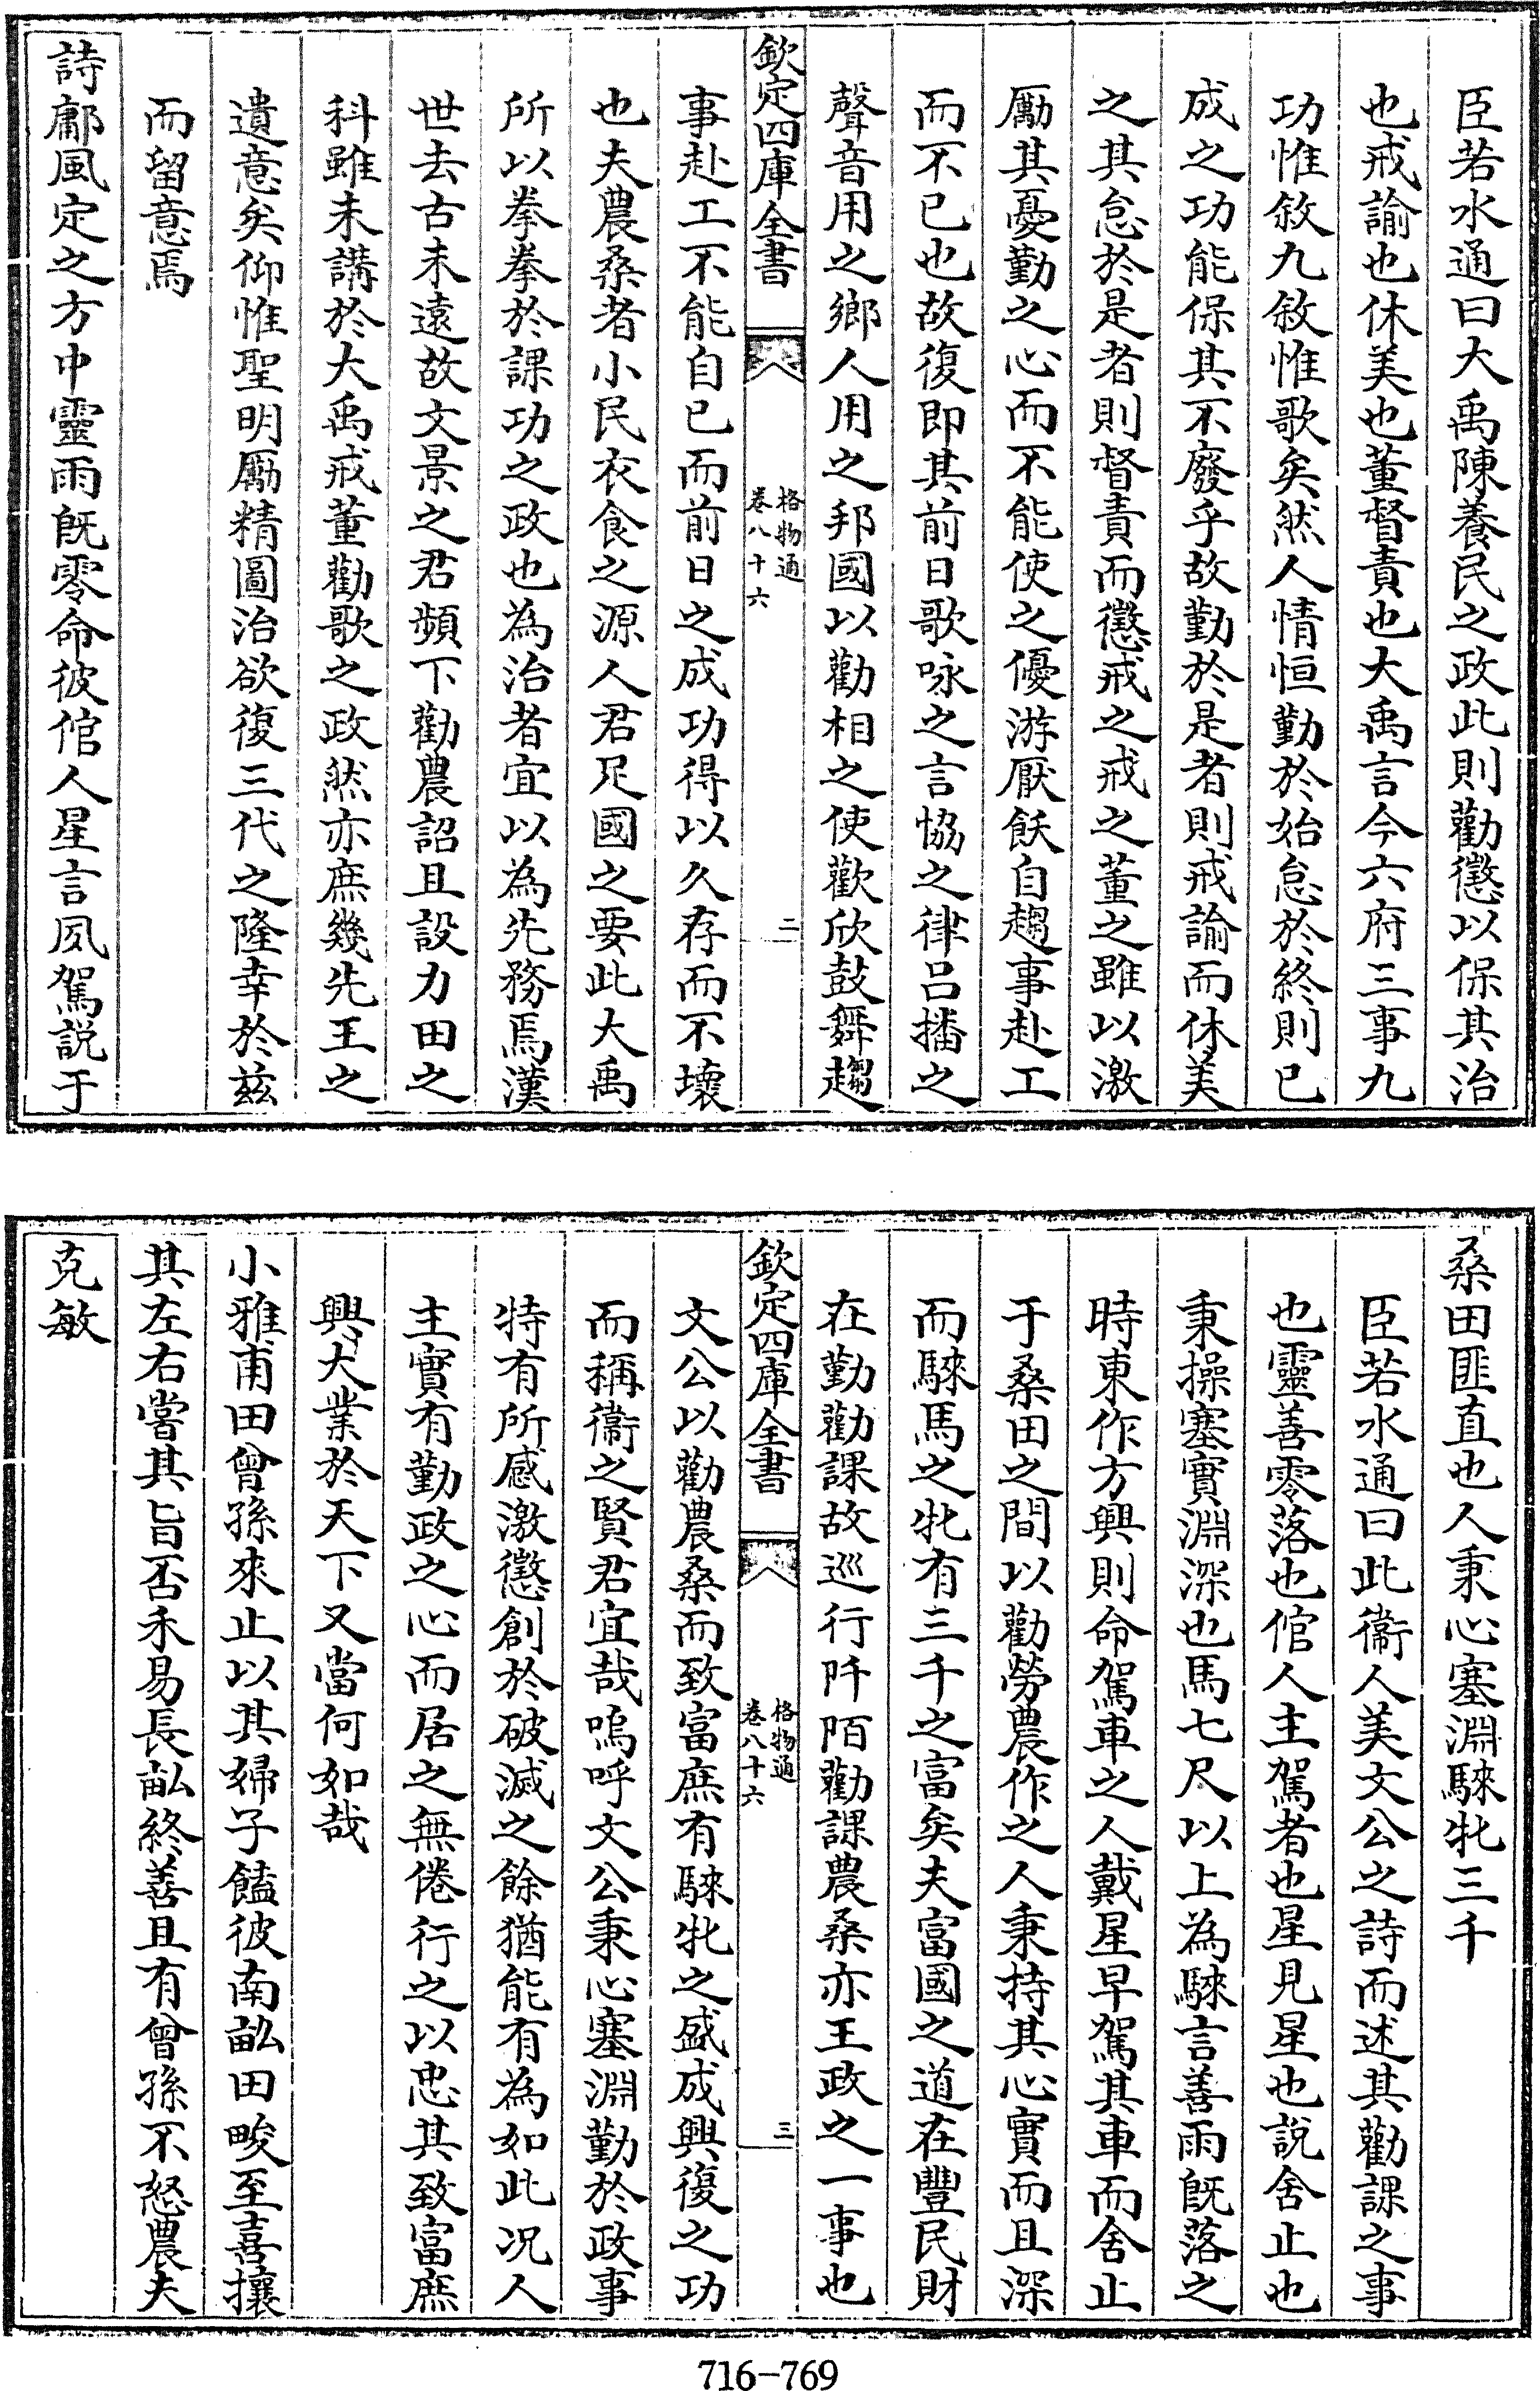 臣若水通曰大禹陳養民之政此則勸懲以保其治
也戒諭也休美也董督責也大禹言今六府三事九
功惟敘九敘惟歌矣然人情恒勤於始怠於終則已
成之功能保其不廢乎故勤於是者則戒諭而休美
之其怠於是者則督責而懲戒之戒之董之雖以激
厲其憂勤之心而不能使之優游厭飫自趨事赴工
而不已也故復即其前日歌咏之言協之律呂播之
聲音用之鄉人用之邦國以勸相之使歡欣鼓舞趨
欽定四庫全書
格物通
卷八十六
二
事赴工不能自已而前日之成功得以久存而不壞
也夫農桑者小民衣食之源人君足國之要此大禹
所以拳拳於課功之政也為治者宜以為先務焉漢
世去古未遠故文景之君頻下勸農詔且設力田之
科雖未講於大禹戒董勸歌之政然亦庶幾先王之
遺意矣仰惟聖明厲精圖治欲復三代之隆幸於茲
而留意焉
詩鄘風定之方中靈雨既零命彼倌人星言夙駕説于
桑田匪直也人秉心塞淵騋牝三千
臣若水通曰此衞人美文公之詩而述其勸課之事
也靈善零落也倌人主駕者也星見星也説舍止也
秉操塞實淵深也馬七尺以上為騋言善雨既落之
時東作方興則命駕車之人戴星早駕其車而舍止
于桑田之間以勸勞農作之人秉持其心實而且深
而騋馬之牝有三千之富矣夫富國之道在豐民財
在勤勸課故巡行阡陌勸課農桑亦王政之一事也
欽定四庫全書
格物通
卷八十六
三
文公以勸農桑而致富庶有騋牝之盛成興復之功
而稱衞之賢君宜哉嗚呼文公秉心塞淵勤於政事
特有所感激懲創於破滅之餘猶能有為如此况人
主實有勤政之心而居之無倦行之以忠其致富庶
興大業於天下又當何如哉
小雅甫田曾孫來止以其婦子饁彼南畝田畯至喜攘
其左右嘗其旨否禾易長畝終善且有曾孫不怒農夫
克敏
716-769